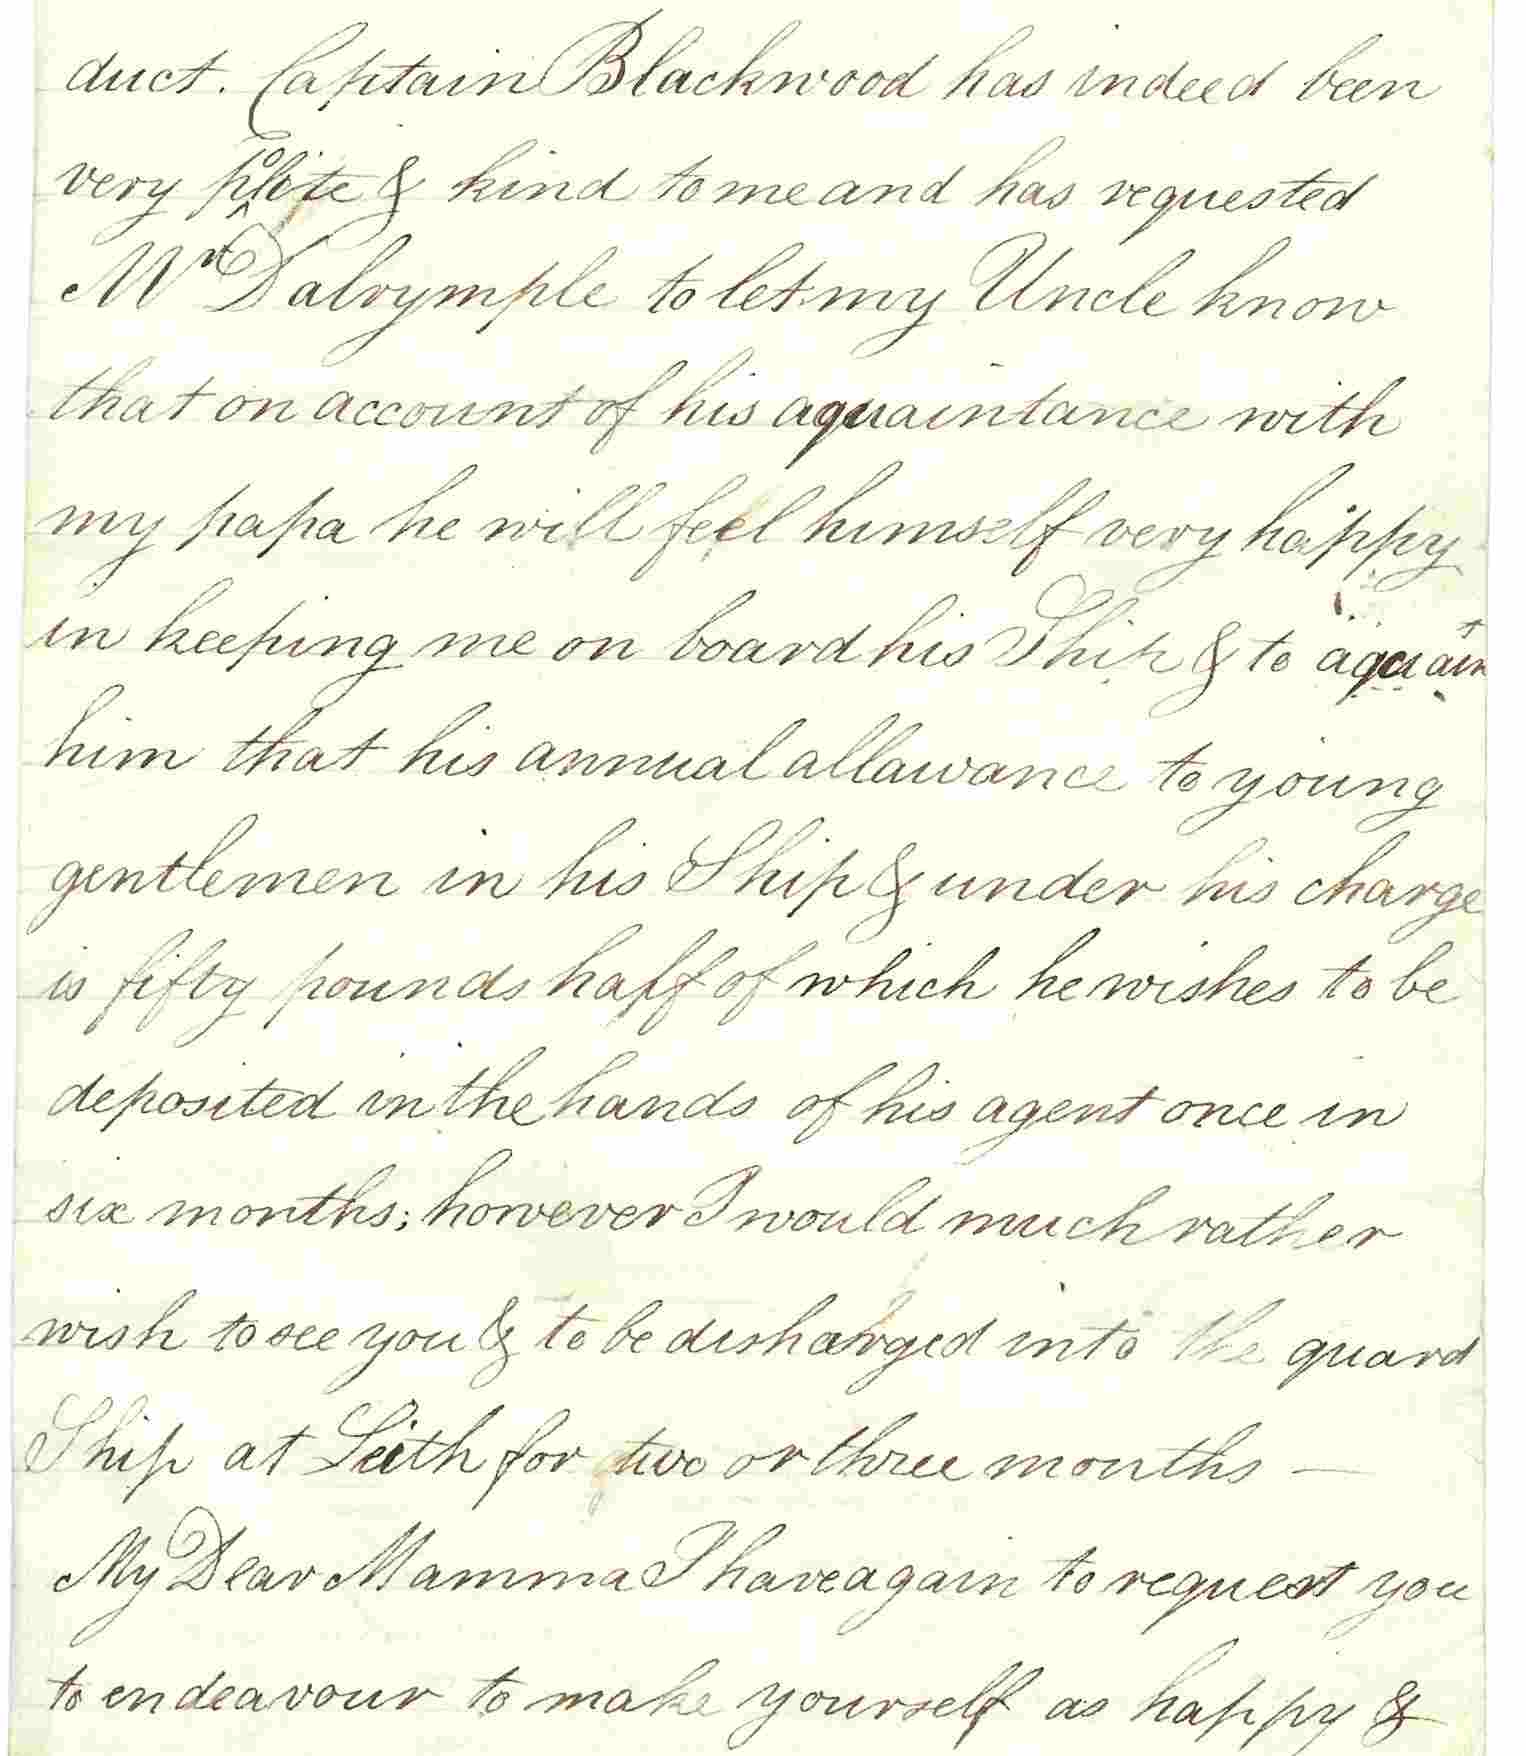 duct. Captain Blackwood has indeed been
very polite & kind to me and has requested
Mr Dalrymple to let my Uncle know
that on account of his aquaintance with
my papa he will feel himself very happy
in keeping me on board his Ship & to aquaint
him that his annual allawance to young
gentlemen in his Ship & under his charge
is fifty pounds half of which he wishes to be
deposited in the hands of his agent once in
six months; however I would much rather
wish to see you & to be disharged into the guard
Ship at Leith for two or three months —
My Dear Mamma I have again to request you
to endeavour to make yourself as happy &